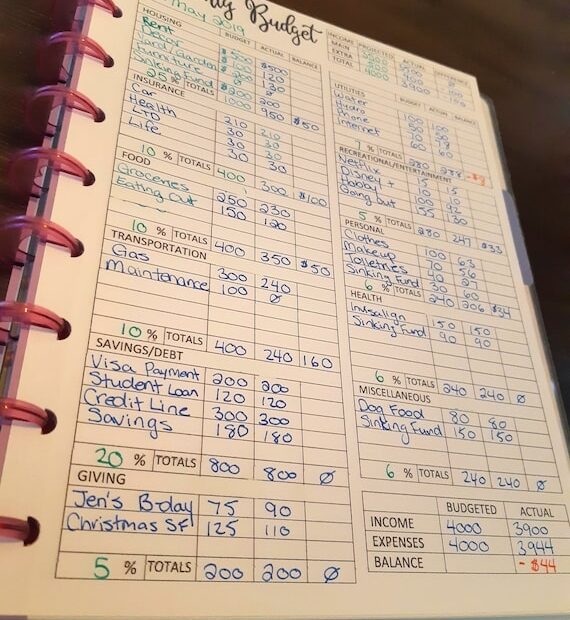 May 2019
Budget
HOUSING BUDGET ACTUAL BALANCE
Rent $500 $500
Decor 120
Furniture 130
Sinking Fund 200 200
25 % TOTALS 1000 950 $50
INSURANCE
Car 210 210
Health 30 30
LTD 30 30
Life 30 30
10 % TOTALS 400 300 $100
FOOD
Groceries 250 230
Eating Out 150 120
10 % TOTALS 400 350 $50
TRANSPORTATION
Gas 300 240
Maintenance 100 Ø
10 % TOTALS 400 240 160
SAVINGS/DEBT
Visa Payment 200 200
Student Loan 120 120
Credit Line 300 300
Savings 180 180
20 % TOTALS 800 800 Ø
GIVING
Jen's B-day 75 90
Christmas SF 125 110
5 % TOTALS 200 200 Ø
INCOME PROJECTED ACTUAL DIFFERENCE
MAIN
EXTRA
TOTAL 4000 3900
UTILITIES BUDGET ACTUAL BALANCE
Water 100 100
Hydro
Phone
Internet 60 60
7 % TOTALS 280
RECREATIONAL/ENTERTAINMENT
Netflix 15 15
Disney +
Hobby 100 92
Going Out 130
5 % TOTALS 280 247 $33
PERSONAL
Clothes 100 63
Makeup 70 56
Toiletries 40 27
Sinking Fund 30 60
6 % TOTALS 240 206 $34
HEALTH
Invisalign 150 150
Sinking Fund 90 90
6 % TOTALS 240 240 Ø
MISCELLANEOUS
Dog Food 80 80
Sinking Fund 150 150
6 % TOTALS 240 240 Ø
BUDGETED ACTUAL
INCOME 4000 3900
EXPENSES 4000 3944
BALANCE - $44